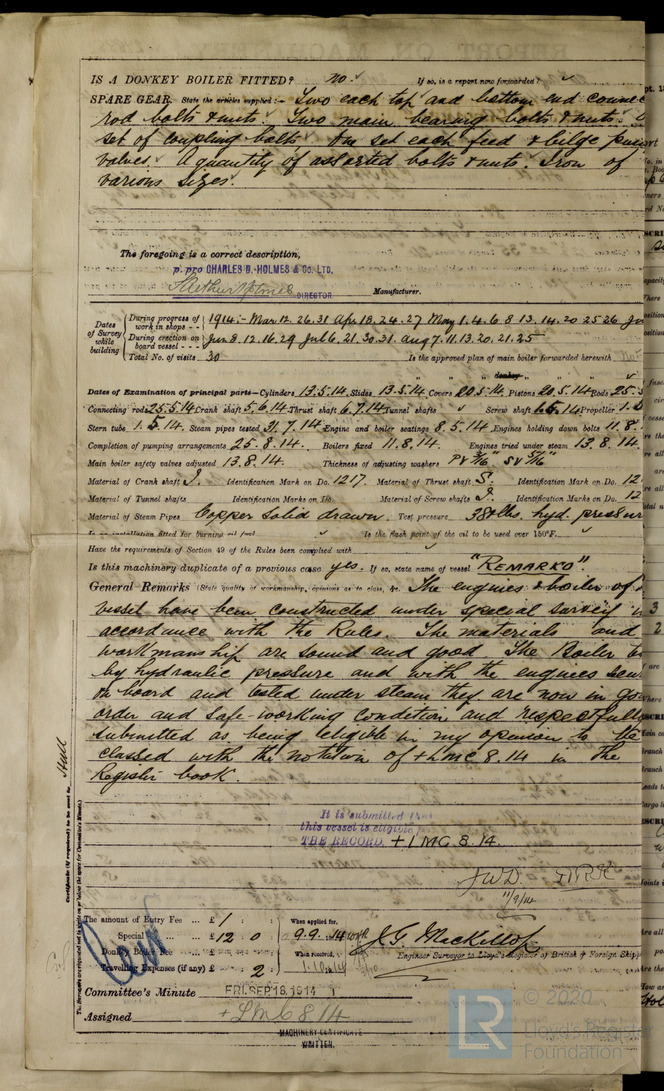 IS A DONKEY BOILER FITTED? no. If so, is a report now forwarded?
SPARE GEAR. State the articles supplied:— Two each top and bottom end connec
rod bolts & nuts. Two main bearing bolts & nuts.
set of coupling bolts. One set each feed & bilge pump
valves. A quantity of assorted bolts & nuts. Iron of
various sizes.
The foregoing is a correct description,
p. pro CHARLES D. HOLMES & Co. LTD.
DIRECTOR Manufacturer.
Dates of Survey while building
During progress of work in shops - - 1914:- Mar 12. 26. 31 Apr 18. 24. 27 May 1. 4. 6. 8 13. 14. 20 25 26
During erection on board vessel - - - Jun 8. 12. 16. 29 Jul 6. 21. 30. 31. Aug 7. 11. 13. 20. 21. 25
Total No. of visits 30 Is the approved plan of main boiler forwarded herewith
" " " donkey " " "
Dates of Examination of principal parts—Cylinders 13.5.14. Slides 13.5.14 Covers 20.5.14. Pistons 20.5.14 Rods 25.5
Connecting rods 25.5.14 Crank shaft 5.6.14 Thrust shaft 6.7.14 Tunnel shafts Screw shaft Propeller
Stern tube 1.5.14. Steam pipes tested 31.7.14 Engine and boiler seatings 8.5.14 Engines holding down bolts 11.8.
Completion of pumping arrangements 25.8.14. Boilers fixed 11.8.14. Engines tried under steam 13.8.14.
Main boiler safety valves adjusted 13.8.14. Thickness of adjusting washers PV 3/16" SV 5/16"
Material of Crank shaft I. Identification Mark on Do. 1217. Material of Thrust shaft S. Identification Mark on Do. 12
Material of Tunnel shafts Identification Marks on Do. Material of Screw shafts I. Identification Marks on Do. 12
Material of Steam Pipes Copper solid drawn. Test pressure 380 lbs. hyd. pressur
Is an installation fitted for burning oil fuel Is the flash point of the oil to be used over 150°F.
Have the requirements of Section 49 of the Rules been complied with
Is this machinery duplicate of a previous case yes. If so, state name of vessel "REMARKO".
General Remarks (State quality of workmanship, opinions as to class, &c. The engines & boiler of
vessel have been constructed under special survey in
accordance with the Rules. The materials and
workmanship are sound and good The Boiler
by hydraulic pressure and with the engines
on board and tested under steam they are now in
order and safe working condition and respectfully
submitted as being eligible in my opinion to
classed with the notation of + LMC 8.14 in the
Register book.
Certificate (if required) to be sent to Hull
It is submitted that
this vessel is eligible
THE RECORD. + LMC 8.14.
JWD
11/9/14
The amount of Entry Fee ... £ 1
Special ... ... £ 12 0
Donkey Boiler Fee
Travelling Expenses (if any) £ 2
When applied for,
9.9.14
When received,
J. G. Mackillop
Engineer Surveyor to Lloyd's Register of British & Foreign Shipp
Committee's Minute FRI. SEP 18. 1914
Assigned + LMC 8.14
MACHINERY CERTIFICATE
WRITTEN.
LR
© 2020
Lloyd's Register
Foundation